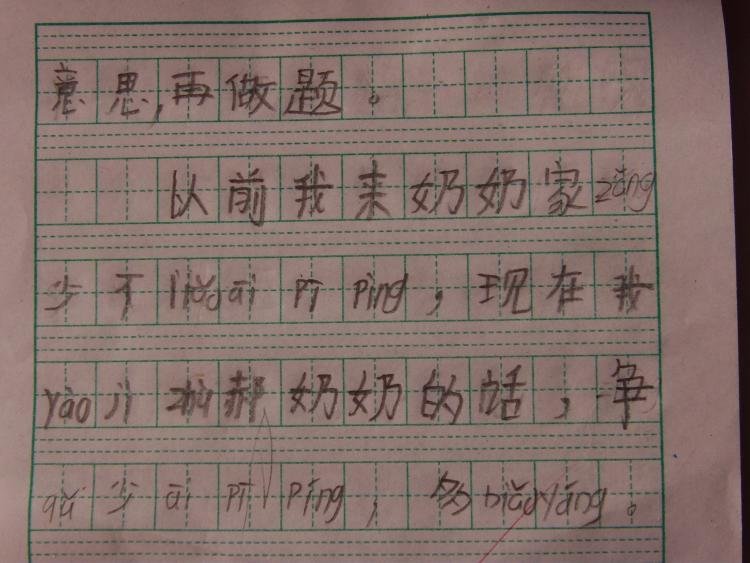 意思,再做题。
以前我来奶奶家zǎng
少不liǎoāi pī pīng,现在我
yào jì zhù 郝奶奶的话,争
qǔ 少 āi pī píng,多biǎoyáng。